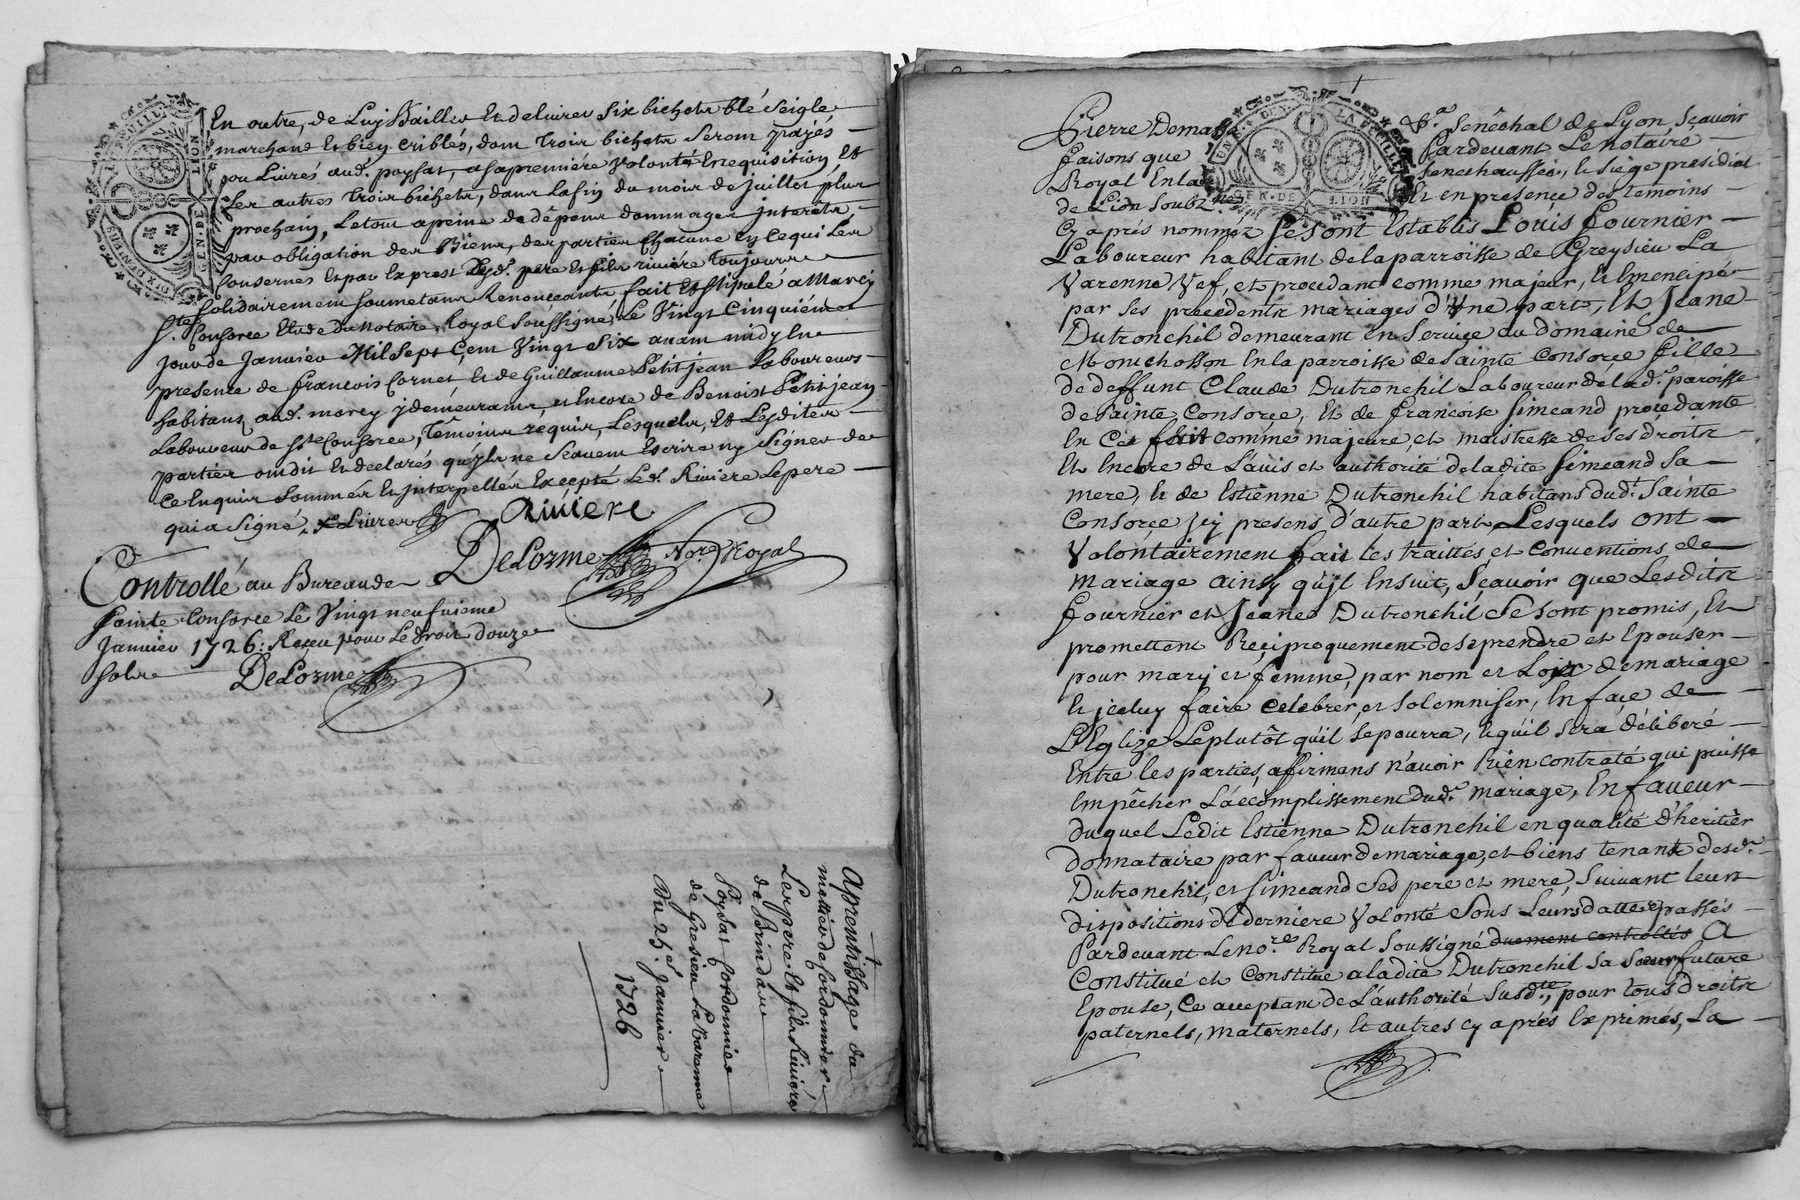 En outre, de Luy Bailler Et delivrer Six bichets blé seigle
marchand Et bien criblés, dont trois bichets seront payés
ou Livrés aud. poysat, asapremiére volonté Enrequisition, Et
Les autres trois bichets, dans lafin du mois de juillet plus
prochain, Letout apeine de dêpens dommages interêts
par obligation des Biens, des parties chacune En cequi Les
Conserne Et par Exprest Lesd. pere Et fils riviére toujours
solidairement soumetans Renonçeants fait Et stipulé a Marcy
Ste Consorce Etude du Notaire, Royal Soussigné, Le Vingt Cinquiéme
jour de Janvier Mil Sept Cent Vingt Six avant midy En
presence de francois Cornet, Et de Guillaume Petitjean Laboureurs
habitans aud. marcy ydemeurans, et Encore de Benoist Petitjean
Laboureur de Ste Consorce, Têmoins requis, Lesquels, Et Lesdites
parties ontdit Et declarés qu'ils ne Scavent Escrire ny Signer de
ce Enquis Sommés Et Interpellés Excepté Led. Riviere Lepere
qui a Signé, x Livrer
Riviere
DeLorme Nore Royal
Controllé au Bureau de
Sainte Consorce Le Vingt neufvieme
Janvier 1726: Receu pour Le droit douze
sols
DeLorme
Aprentissage du
mettier de Cordonnier
Les pere Et fils Riviére
de Brindas
Poysat Cordonnier
de Gresieu La Varenne
Du 25e. Janvier
1726
Pierre Dema Sr. Senêchal de Lyon Sçavoir
faisons que Pardevant Lenotaire
Royal En la Senechaussée, & Siège presidial
de Lion Soubz.né Et en presence des temoins
Cy aprés nommez Sésont Establis Louis Fournier
Laboureur habitant delaparroisse de Greysieu La
Varenne Vef, et procedant comme majeur, & Emencipé
par ses précedents mariages d'Une part, Et Jeane
Dutronchil demeurant En Service au domaine de
Montchosson En la parroisse de Sainte Consorce fille
de deffunt Claude Dutronchil Laboureur de lad.e paroisse
de Sainte Consorce, Et de francoise Simeand procedante
En Ces fait comme majeure, et maistresse de ses droits
Et Encore de L'avis et authorité deladite Simeand Sa
mere, & de Estienne Dutronchil habitans dud.t Sainte
Consorce jcy presens d'autre part, Lesquels ont
Volontairement fait Les traittés et conventions de
mariage ainsy qu'il Ensuit, Sçavoir que Lesdits
fournier et Jeane Dutronchil Se sont promis, Et
promettent Réçiproquement deseprendre et Epouser
pour mary et femme, par nom et Loix de mariage
& jceluy faire celebrer, et solemniser, En face de
L'Eglize Leplutôt qu'il sepourra, & qu'il sera délibéré
Entre les parties, affirmans n'avoir Rien contraté qui puisse
Empêcher L'accomplissement dud. mariage, En faveur
duquel Ledit Estienne Dutronchil en qualité d'heritier
donnataire par faveur de mariage, et biens tenant desd.
Dutronchil, et Simeand Ses pere et mere, Suivant leurs
dispositions de derniere Volonté Sous Leurs dattes, passés
Pardevant Leno.re Royal Soussigné duement controllés A
Constitué et Constitue a ladite Dutronchil Sa Sœur future
Epouse, Ce aceptant de L'authorité Susd.te, pour tous droits
paternels, maternels, Et autres cy aprés Exprimés, La